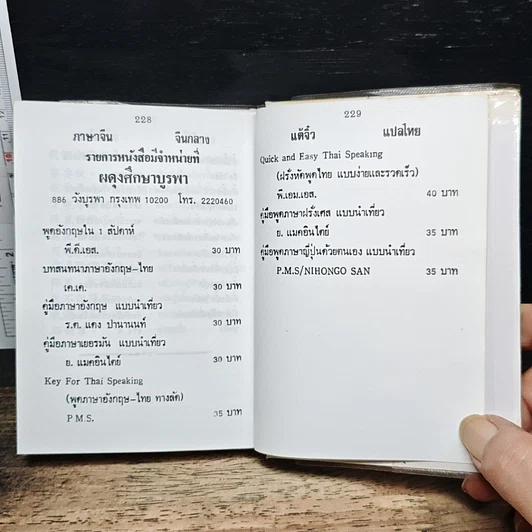 228
ภาษาจีน จีนกลาง
รายการหนังสือมีจำหน่ายที่
ผดุงศึกษาบูรพา
886 วังบูรพา กรุงเทพ 10200 โทร. 2220460
พูดอังกฤษใน 1 สัปดาห์
พี.ดี.เอส. 30 บาท
บทสนทนาภาษาอังกฤษ-ไทย
เค.เค. 30 บาท
คู่มือภาษาอังกฤษ แบบนำเที่ยว
ร.ค. แดง ปานานนท์ 30 บาท
คู่มือภาษาเยอรมัน แบบนำเที่ยว
ย. แมคอินไตย์ 30 บาท
Key For Thai Speaking
(พูดภาษาอังกฤษ-ไทย ทางลัด)
P.M.S. 35 บาท
229
แต้จิ๋ว แปลไทย
Quick and Easy Thai Speaking
(ฝรั่งหัดพูดไทย แบบง่ายและรวดเร็ว)
พี.เอม.เอส. 40 บาท
คู่มือพูดภาษาฝรั่งเศส แบบนำเที่ยว
ย. แมคอินไตย์ 35 บาท
คู่มือพูดภาษาญี่ปุ่นด้วยตนเอง แบบนำเที่ยว
P.M.S/NIHONGO SAN 35 บาท